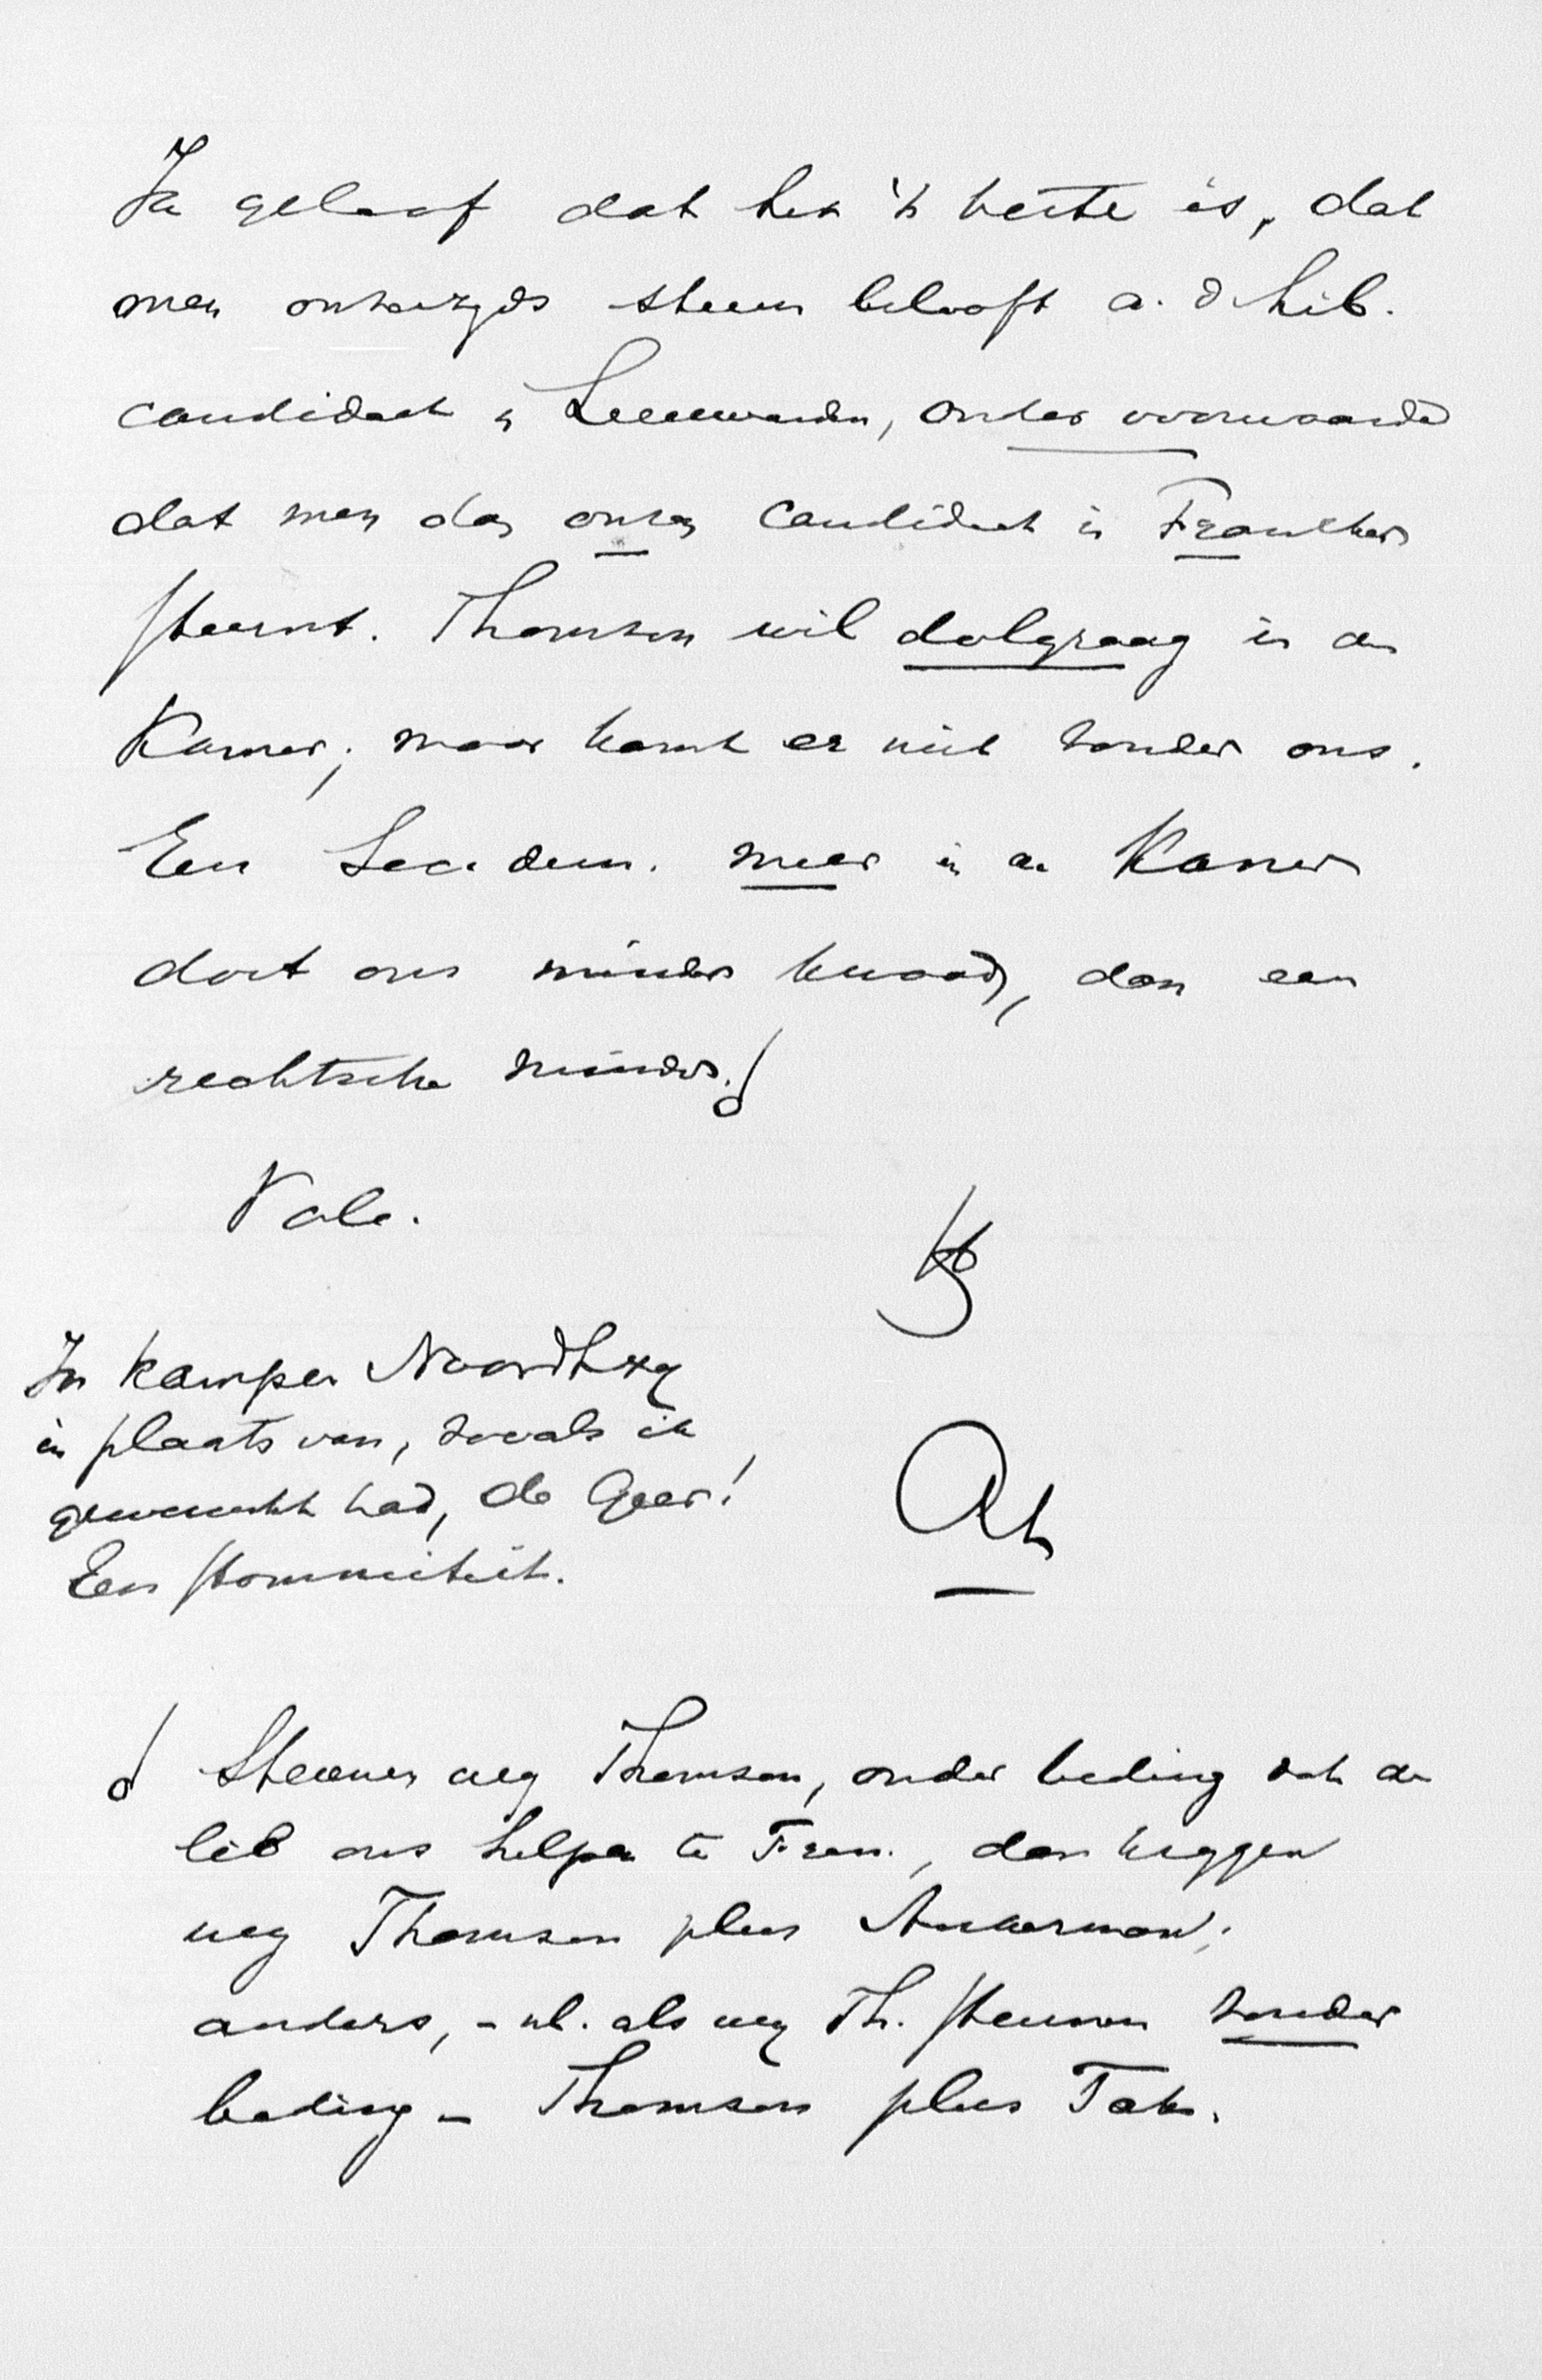 Ik geloof dat het 't beste is, dat
men onzerzijds steun belooft a. d lib.
candidaat in Leeuwarden, onder voorwaarde
dat men dan onzen candidaat in Franeker
steunt. Thomson wil dolgraag in de
Kamer; maar komt er niet zonder ons.
Een Soc. dem. meer in de Kamer
doet ons minder kwaad, dan een
rechtsche minder.
Vale.
In Kampen Noordtzij
in plaats van, zooals ik
gewenscht had, de Geer!
Een stommiteit.
Steunen wij Thomson, onder beding dat de
lib ons helpen te Fran., dan krijgen
wij Thomson plus Ankerman;
anders, - nl. als wij Th. steunen zonder
beding - Thomson plus Tak.